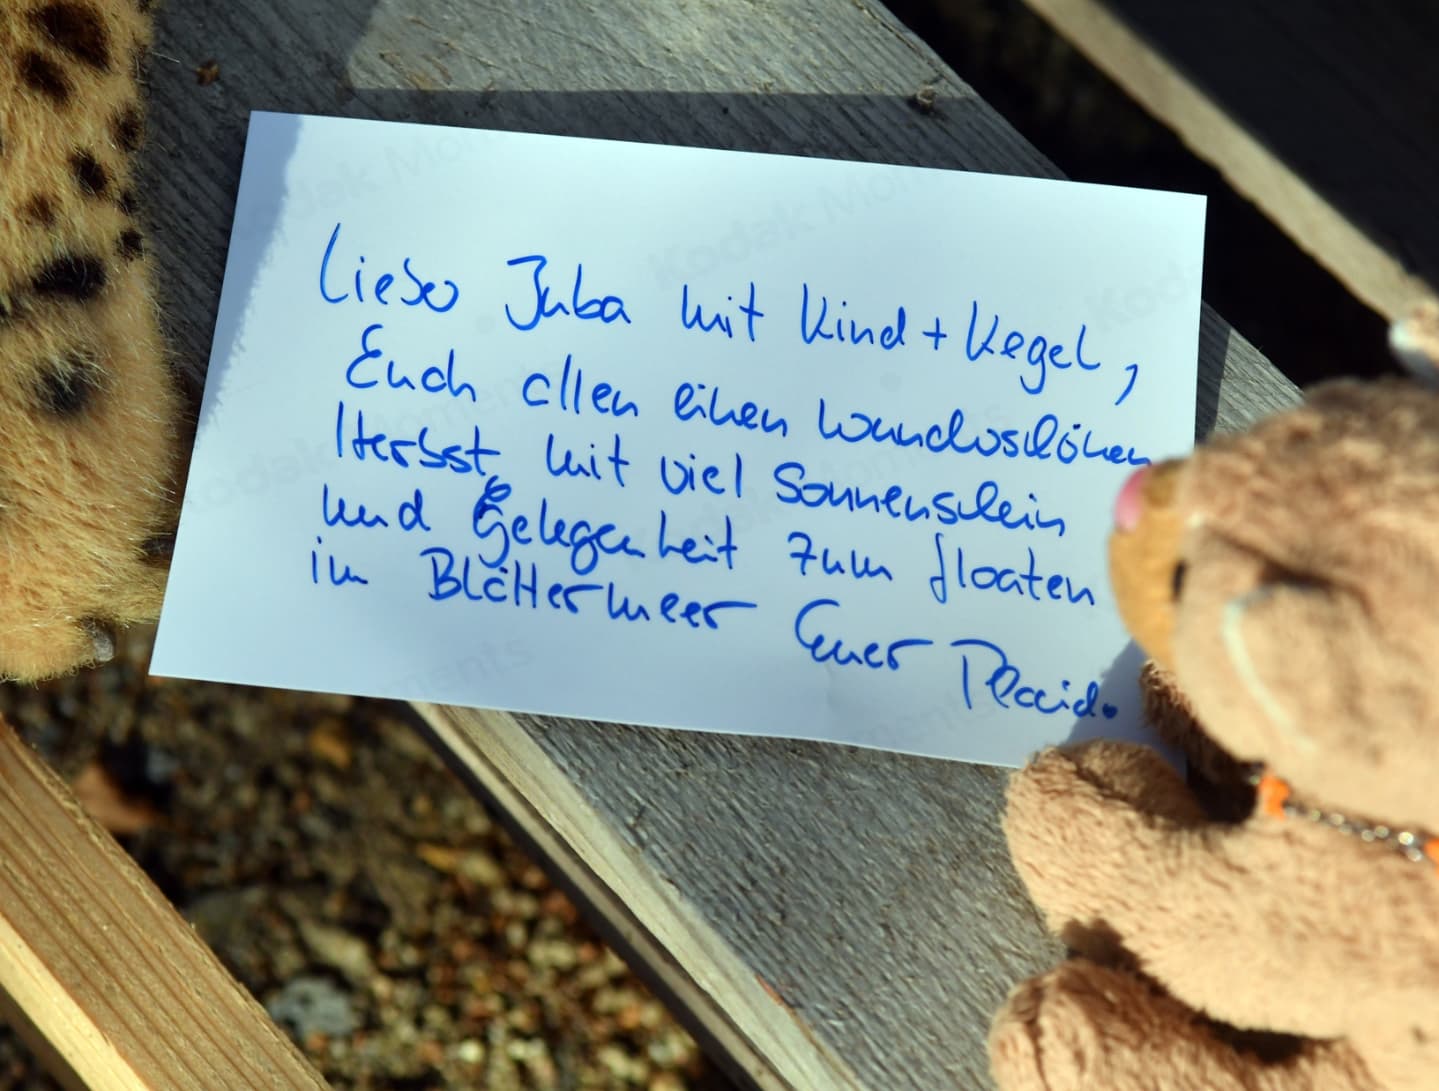 Lieber Juba mit Kind + Kegel,
Euch allen einen wunderschönen
Herbst mit viel Sonnenschein
und Gelegenheit zum floaten
im Blättermeer Euer Placido
Kodak Moments
Kodak Moments
Kodak Moments